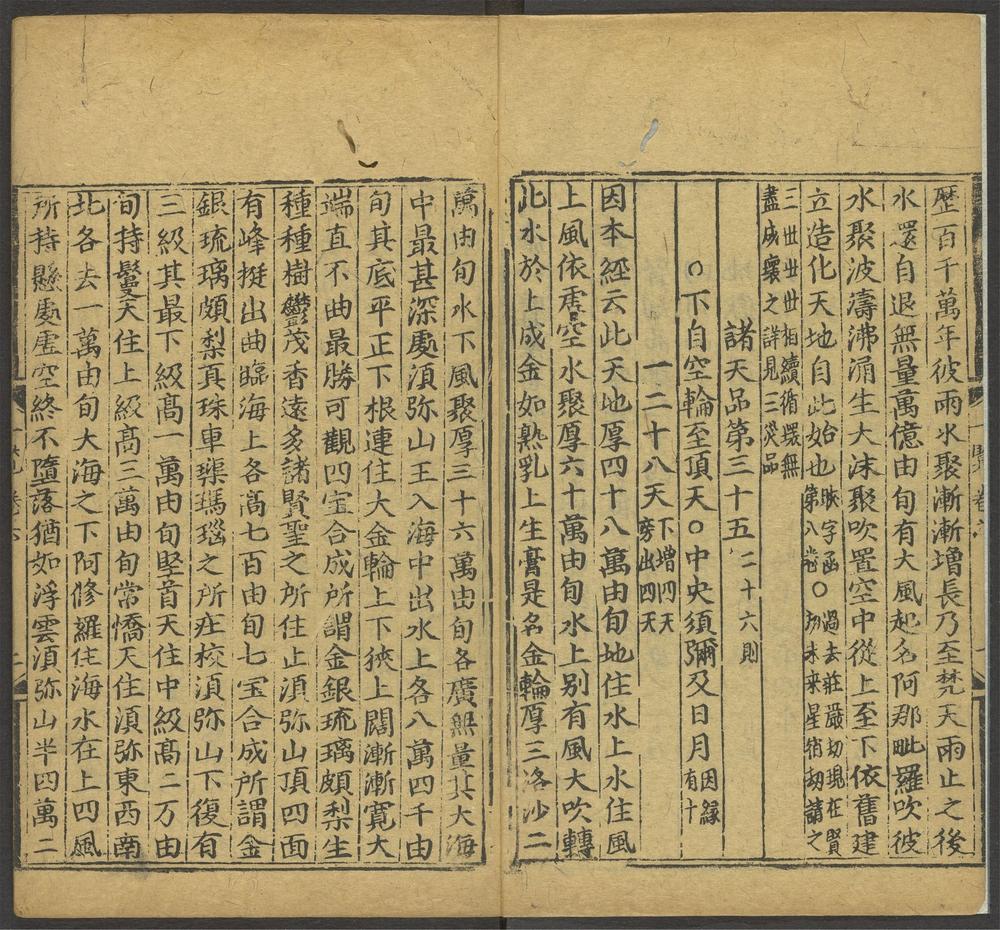 歷百千萬年彼雨水聚漸漸增長乃至梵天雨止之後
水還自退無量萬億由旬有大風起名阿那毗羅吹彼
水聚波濤沸涌生大沫聚吹置空中從上至下依舊建
立造化天地自此始也昃字函第八卷○過去莊嚴劫現在賢劫未来星宿劫請之
三世世世相續循環無盡成壞之詳見三災品
諸天品第三十五二十六則
○下自空輪至頂天○中央須彌及日月因緣有十
一二十八天下增四天旁出四天
因本經云此天地厚四十八萬由旬地住水上水住風
上風依虛空水聚厚六十萬由旬水上别有風大吹轉
此水於上成金如熟乳上生膏是名金輪厚三洛沙二
萬由旬水下風聚厚三十六萬由旬各廣無量其大海
中最甚深處須弥山王入海中出水上各八萬四千由
旬其底平正下根連住大金輪上下狹上闊漸漸寛大
端直不曲最勝可觀四宝合成所謂金銀琉璃頗梨生
種種樹鬱茂香遠多諸賢聖之所住止須弥山頂四面
有峰挺出曲臨海上各高七百由旬七宝合成所謂金
銀琉璃頗梨真珠車璖瑪瑙之所庄校須弥山下復有
三級其最下級高一萬由旬堅首天住中級高二万由
旬持鬘天住上級高三萬由旬常憍天住須弥東西南
北各去一萬由旬大海之下阿修羅住海水在上四風
所持懸處虛空終不墮落猶如浮雲須弥山半四萬二